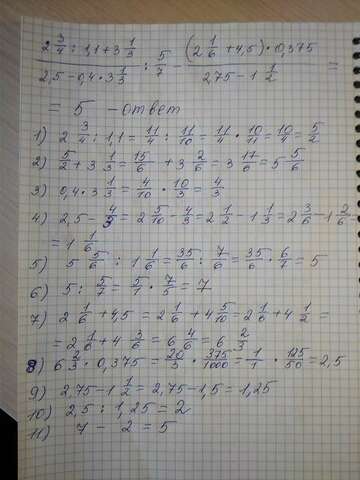 (2 3/4 : 1,1 + 3 1/3) / (2,5 - 0,4 · 3 1/3) : 5/7 - ((2 1/6 + 4,5) · 0,375) / (2,75 - 1 1/2) =
= 5 - ответ
1) 2 3/4 : 1,1 = 11/4 : 11/10 = 11/4 · 10/11 = 10/4 = 5/2
2) 5/2 + 3 1/3 = 15/6 + 3 2/6 = 3 17/6 = 5 5/6
3) 0,4 · 3 1/3 = 4/10 · 10/3 = 4/3
4) 2,5 - 4/3 = 2 5/10 - 4/3 = 2 1/2 - 1 1/3 = 2 3/6 - 1 2/6 =
= 1 1/6
5) 5 5/6 : 1 1/6 = 35/6 : 7/6 = 35/6 · 6/7 = 5
6) 5 : 5/7 = 5/1 · 7/5 = 7
7) 2 1/6 + 4,5 = 2 1/6 + 4 5/10 = 2 1/6 + 4 1/2 =
= 2 1/6 + 4 3/6 = 6 4/6 = 6 2/3
8) 6 2/3 · 0,375 = 20/3 · 375/1000 = 1/1 · 125/50 = 2,5
9) 2,75 - 1 1/2 = 2,75 - 1,5 = 1,25
10) 2,5 : 1,25 = 2
11) 7 - 2 = 5